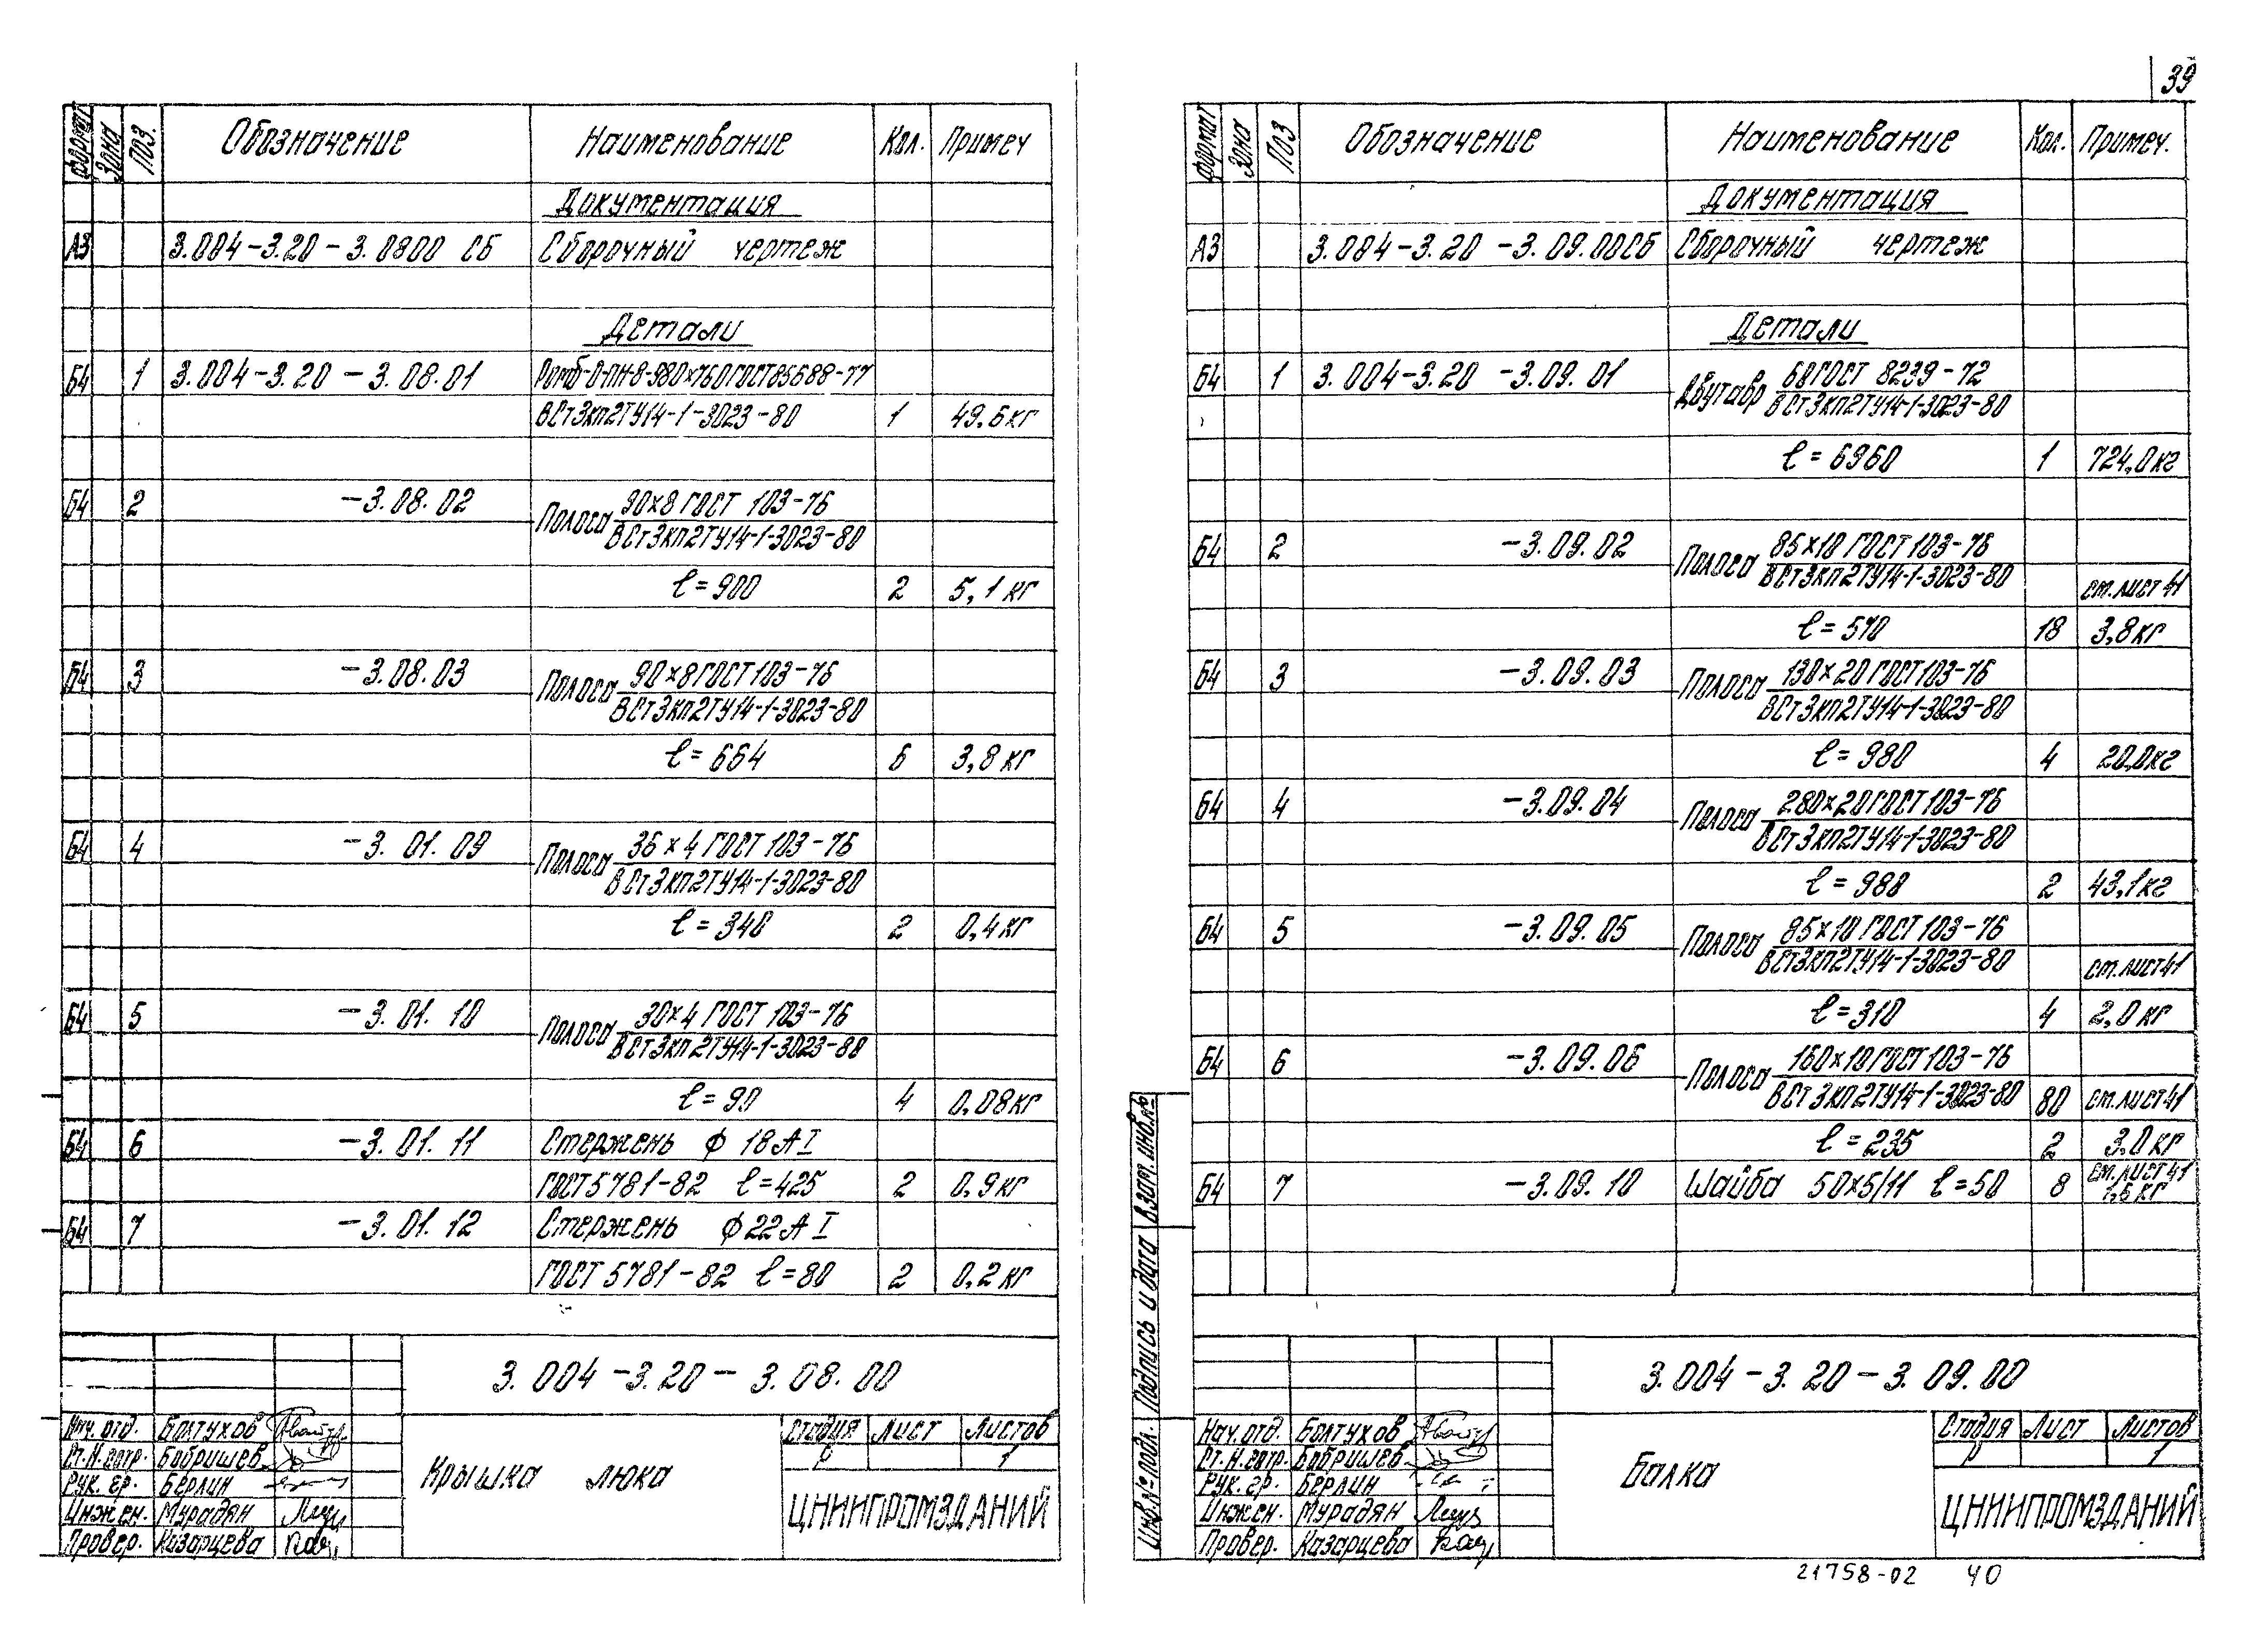 39
Формат Зона Поз. Обозначение Наименование Кол. Примеч
Документация
А3 3.004-3.20-3.0800 СБ Сборочный чертеж
Детали
Б4 1 3.004-3.20-3.08.01 Ромб-0-ПН-8-980×760ГОСТ85688-77
ВСт3кп2ТУ14-1-3023-80 1 49.6кг
Б4 2 -3.08.02 Полоса 90×8 ГОСТ 103-76
ВСт3кп2ТУ14-1-3023-80
ℓ=900 2 5,1 кг
Б4 3 -3.08.03 Полоса 90×8 ГОСТ 103-76
ВСт3кп2ТУ14-1-3023-80
ℓ=664 6 3,8 кг
Б4 4 -3.01.09 Полоса 36×4 ГОСТ 103-76
ВСт3кп2ТУ14-1-3023-80
ℓ=340 2 0,4кг
Б4 5 -3.01.10 Полоса 30×4 ГОСТ 103-76
ВСт3кп2ТУ14-1-3023-80
ℓ=90 4 0,08кг
Б4 6 -3.01.11 Стержень ϕ 18АI
ГОСТ5781-82 ℓ=425 2 0,9кг
Б4 7 -3.01.12 Стержень ϕ22АI
ГОСТ 5781-82 ℓ=80 2 0,2 кг
3.004-3.20-3.08.00
Нач. отд. Болтухов
Ст.Н.контр. Бобришев
Рук. гр. Берлин
Инжен. Мурадян
Провер. Казарцева
Крышка люка
Стадия Лист Листов
Р 1
ЦНИИПРОМЗДАНИЙ
Формат Зона Поз Обозначение Наименование Кол. Примеч.
Документация
А3 3.004-3.20-3.09.00СБ Сборочный чертеж
Детали
Б4 1 3.004-3.20-3.09.01 Двутавр 60ГОСТ 8239-72
ВСт3кп2ТУ14-1-3023-80
ℓ=6960 1 724,0кг
Б4 2 -3.09.02 Полоса 85×10 ГОСТ 103-76
ВСт3кп2ТУ14-1-3023-80 см.лист 41
ℓ=570 18 3,8кг
Б4 3 -3.09.03 Полоса 130×20 ГОСТ 103-76
ВСт3кп2ТУ14-1-3023-80
ℓ=980 4 20,0кг
Б4 4 -3.09.04 Полоса 280×20 ГОСТ 103-76
ВСт3кп2ТУ14-1-3023-80
ℓ=988 2 43,1кг
Б4 5 -3.09.05 Полоса 85×10 ГОСТ 103-76
ВСт3кп2ТУ14-1-3023-80 см.лист41
ℓ=310 4 2,0 кг
Б4 6 -3.09.06 Полоса 160×10ГОСТ 103-76
ВСт3кп2ТУ14-1-3023-80 80 см.лист41
ℓ=235 2 3.0 кг
Б4 7 -3.09.10 Шайба 50×5/11 ℓ=50 8 см.лист 41
1,6 кг
Инв.№ подл. Подпись и дата Взам. инв.№
3.004-3.20-3.09.00
Нач. отд. Болтухов
Ст.Н.контр. Бобришев
Рук. гр. Берлин
Инжен. Мурадян
Провер. Казарцева
Балка
Стадия Лист Листов
Р 1
ЦНИИПРОМЗДАНИЙ
21758-02 40